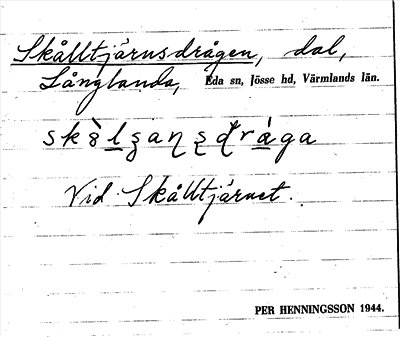 Skålltjärnsdrågen, dal,
Långlanda, Eda sn, Jösse hd, Värmlands län.
Vid Skålltjärnet.
PER HENNINGSSON 1944.